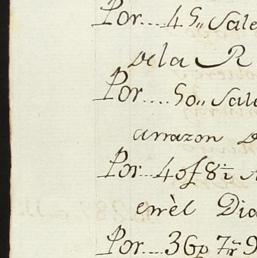 Por... 45,, Sale
de la R
Por.... 50,, Sale
arrazon d
Por... 4 of 8 i
enrèl Dia
Por... 36p 7r 9